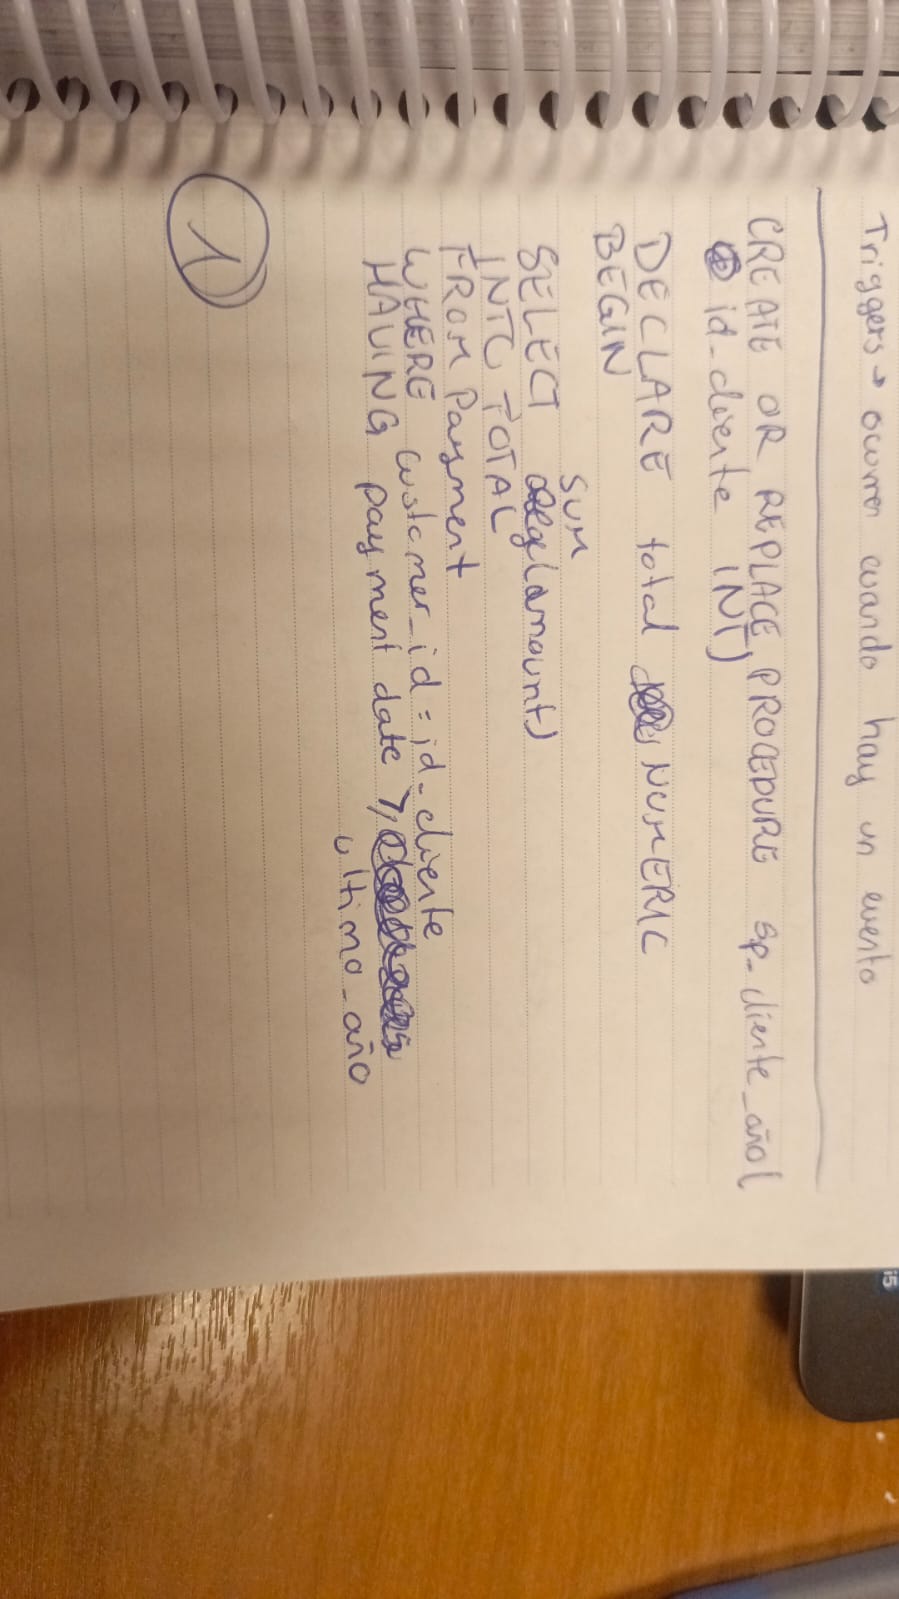 Triggers → ocurren cuando hay un evento
CREATE OR REPLACE PROCEDURE sp_cliente_año(
id_cliente INT)
DECLARE total NUMERIC
BEGIN
SUM
SELECT (amount)
INTO TOTAL
FROM Payment
WHERE customer_id = id_cliente
HAVING payment date >,
ultimo_año
1
i5